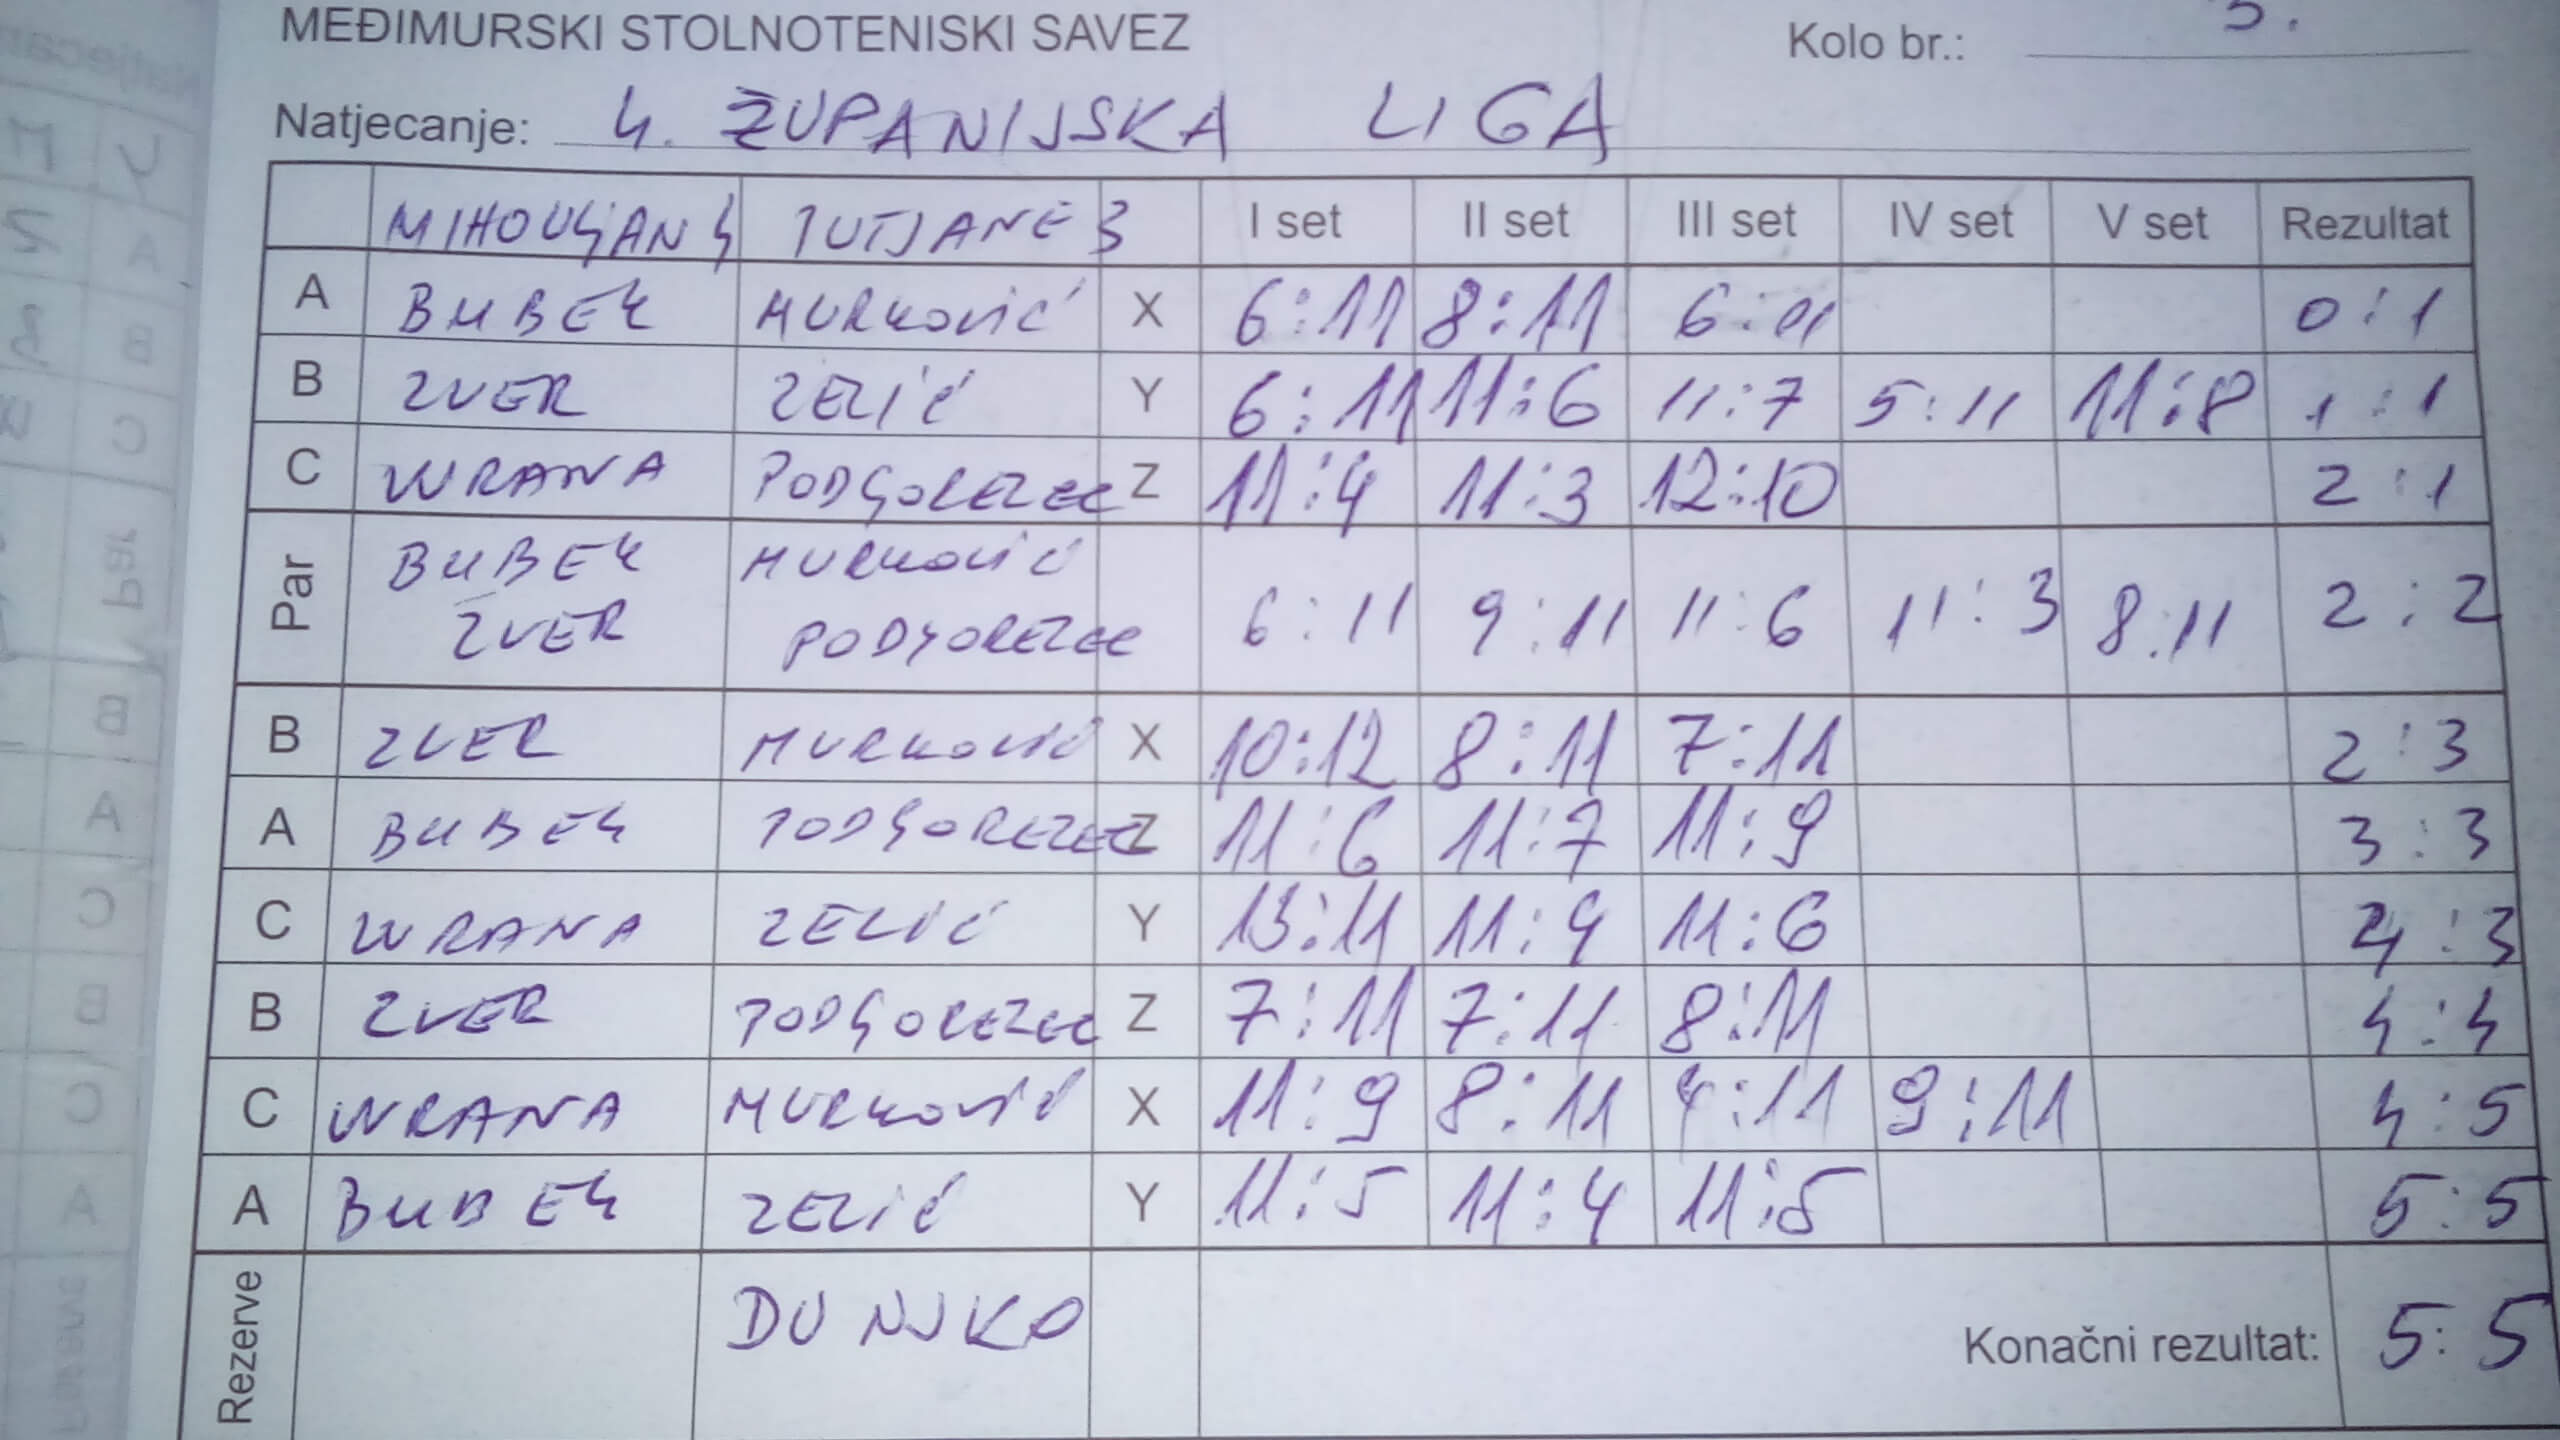 MEĐIMURSKI STOLNOTENISKI SAVEZ Kolo br.:
Natjecanje: 4. ŽUPANIJSKA LIGA
MIHOVLJAN 4 PUTJANE 3 I set II set III set IV set V set Rezultat
A BUBEK MURKOVIĆ X 6:11 8:11 6:11 0:1
B ZVER ZELIĆ Y 6:11 11:6 11:7 5:11 11:8 1:1
C WRANA PODGORELEC Z 11:4 11:3 12:10 2:1
Par BUBEK MURKOVIĆ
ZVER PODGORELEC 6:11 9:11 11:6 11:3 8:11 2:2
B ZVER MURKOVIĆ X 10:12 8:11 7:11 2:3
A BUBEK PODGORELEC Z 11:6 11:7 11:9 3:3
C WRANA ZELIĆ Y 13:11 11:4 11:6 4:3
B ZVER PODGORELEC Z 7:11 7:11 8:11 4:4
C WRANA MURKOVIĆ X 11:9 8:11 4:11 9:11 4:5
A BUBEK ZELIĆ Y 11:5 11:4 11:5 5:5
Rezerve DUNJKO Konačni rezultat: 5:5